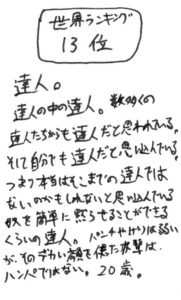 世界ランキング
13位
達人。
達人の中の達人。数多くの
達人たちからも達人だと思われている。
そして自分でも達人だと思い込んでいる。
つまり本当はそこまでの達人では
ないのかもしれないと思い込んでいる
奴を簡単に黙らせることができる
くらいの達人。パンチやけりは弱い
が、そのデカい顔を使った攻撃は
ハンパではない。20歳。